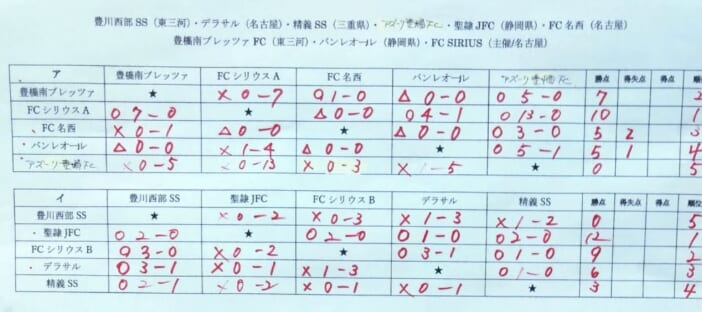 豊川西部 SS（東三河）・デラサル（名古屋）・精義 SS（三重県）・アズーリ豊橋FC・聖隷 JFC（静岡県）・FC 名西（名古屋）
豊橋南プレッツァ FC（東三河）・バンレオール（静岡県）・FC SIRIUS（主催/名古屋）
ア 豊橋南プレッツァ FC シリウス A FC 名西 バンレオール アズーリ豊橋FC 勝点 得失点 得点 順位
豊橋南プレッツァ ★ × 0-7 ○ 1-0 △ 0-0 ○ 5-0 7 2
FC シリウス A ○ 7-0 ★ △ 0-0 ○ 4-1 ○ 13-0 10 1
FC 名西 × 0-1 △ 0-0 ★ △ 0-0 ○ 3-0 5 2 3
バンレオール △ 0-0 × 1-4 △ 0-0 ★ ○ 5-1 5 1 4
アズーリ豊橋FC × 0-5 × 0-13 × 0-3 × 1-5 ★ 0 5
イ 豊川西部 SS 聖隷 JFC FC シリウス B デラサル 精義 SS 勝点 得失点 得点 順位
豊川西部 SS ★ × 0-2 × 0-3 × 1-3 × 1-2 0 5
聖隷 JFC ○ 2-0 ★ ○ 2-0 ○ 1-0 ○ 2-0 12 1
FC シリウス B ○ 3-0 × 0-2 ★ ○ 3-1 ○ 1-0 9 2
デラサル ○ 3-1 × 0-1 × 1-3 ★ ○ 1-0 6 3
精義 SS ○ 2-1 × 0-2 × 0-1 × 0-1 ★ 3 4